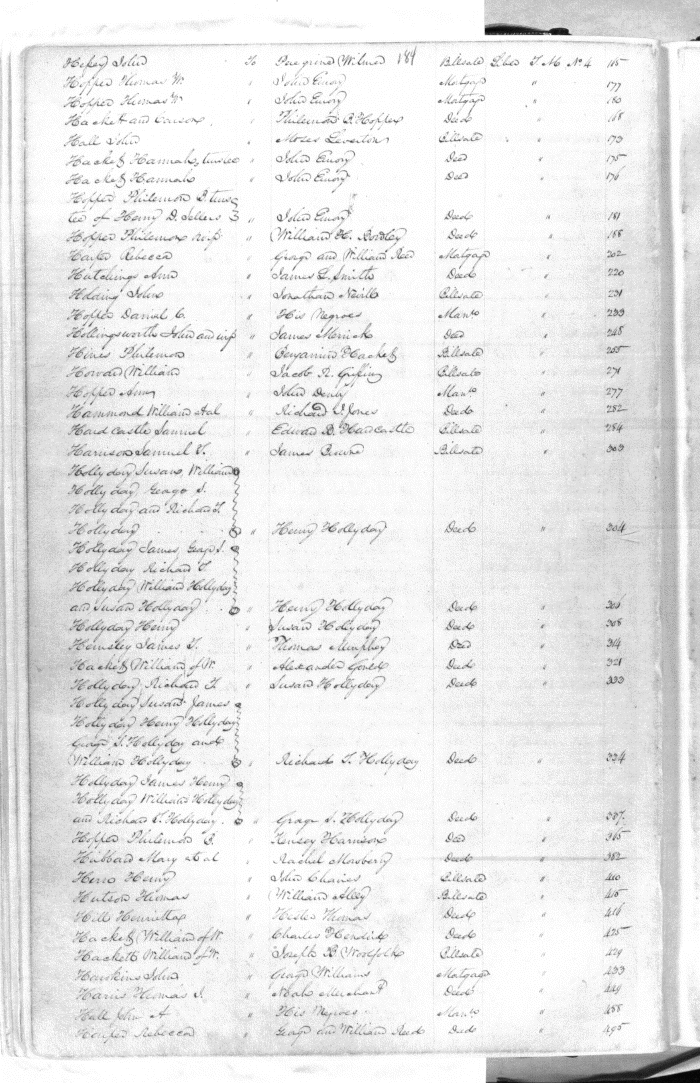 184
Hoper John To Peregrine Wilmer Billsale Liber T M No 4 165
Hopper Thomas W. " John Emory Mortgage " 177
Hopper Thomas W " John Emory Mortgage " 180
Hacket and Carson " Philemon B. Hopper Deed " 168
Hall John " Moses Leverton Billsale " 173
Hacket Hannah, trustee " John Emory Deed " 175
Hacket Hannah " John Emory Deed " 176
Hopper Philemon B. trus
tee of Henry D. Sellers " John Emory Deed " 181
Hopper Philemon " William H. Bordley Deed " 188
Harper Rebecca " George and William Reed Mortgage " 202
Hutchings Ann " James L. Smith Deed " 220
Holding John " Jonathan Neill Billsale " 231
Hopper Daniel C. " His Negroes Manu 233
Hollingsworth John and wife " James Merrick Deed " 248
Hines Philemon " Benjamin Hacket Billsale " 255
William " Jacob R. Griffin Billsale " 271
Hopper Ann " John Denby Manu " 277
Hammond William et al " Richard I Jones Deed " 282
Hardcastle Samuel " Edward B. Hardcastle Billsale " 284
Harrison Samuel T. " James Billsale " 303
Hollyday Susan, William
Hollyday George S.
Hollyday and Richard T.
Hollyday " Henry Hollyday Deed " 304
Hollyday James, George S.
Hollyday Richard T
Hollyday William Hollyday
and Susan Hollyday " Henry Hollyday Deed " 306
Hollyday Henry " Susan Hollyday Deed " 308
Hemsley James T. " Thomas Murphey Deed " 314
Hacket William of W. " Alexander Deed " 321
Hollyday Richard T. " Susan Hollyday Deed " 333
Hollyday Susan James
Hollyday Henry Hollyday
George S. Hollyday and
William Hollyday " Richard T. Hollyday Deed " 334
Hollyday James Henry
Hollyday William Hollyday
and Richard T. Hollyday " George S. Hollyday Deed " 337
Hopper Philemon B. " Kensey Harrison Deed " 365
Hubbard Mary et al " Rachel Deed " 382
Henry " John Chaires Billsale " 410
Hutson Thomas " William Alley Billsale " 415
Hill Henrietta " Hester Thomas Deed " 416
Hacket William of W. " Charles Hendrix Deed " 425
Hackett William of W. " Joseph B. Woolfolk Billsale " 429
Hawkins John " George Williams Mortgage " 433
Harris Thomas I. " Noah Merchant Deed " 449
Hall John A " His Negroes Manu " 458
Hooper Rebecca " George and William Reed Deed " 495